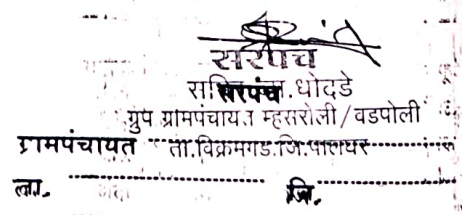 सरपंच
सरपंच .धोदडे
ग्रुप ग्रामपंचायत म्हसरोली/वडपोली
ग्रामपंचायत ता.विक्रमगड.जि.पालघर
ता. जि.